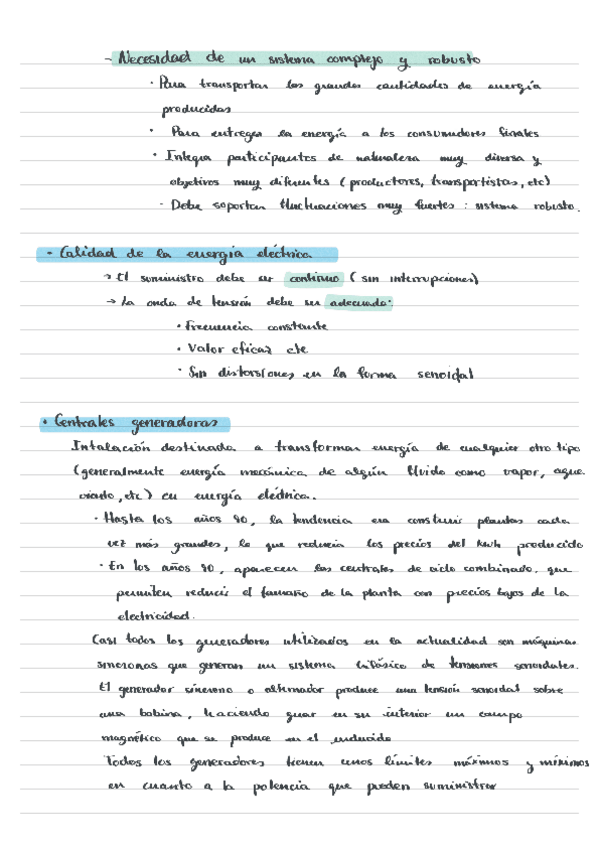 - Necesidad de un sistema complejo y robusto
· Para transportar las grandes cantidades de energía
producidas
· Para entregar la energía a los consumidores finales
· Integra participantes de naturaleza muy diversa y
objetivos muy diferentes (productores, transportistas, etc)
· Debe soportar fluctuaciones muy fuertes : sistema robusto.
· Calidad de la energía eléctrica
→ El suministro debe ser continuo (sin interrupciones)
→ La onda de tensión debe ser adecuada:
· Frecuencia constante
· Valor eficaz cte
· Sin distorsiones en la forma senoidal
· Centrales generadoras
Intalación destinada a transformar energía de cualquier otro tipo
(generalmente energía mecánica de algún fluido como vapor, agua
viento, etc) en energía eléctrica.
· Hasta los años 90, la tendencia era construir plantas cada
vez más grandes, lo que reducía los precios del kWh producido
· En los años 90, aparecen las centrales de ciclo combinado, que
permiten reducir el tamaño de la planta con precios bajos de la
electricidad.
Casi todos los generadores utilizados en la actualidad son máquinas
síncronas que generan un sistema trifásico de tensiones senoidales.
El generador síncrono o alternador produce una tensión senoidal sobre
una bobina, haciendo girar en su interior un campo
magnético que se produce en el inducido
Todos los generadores tienen unos límites máximos y mínimos
en cuanto a la potencia que pueden suministrar